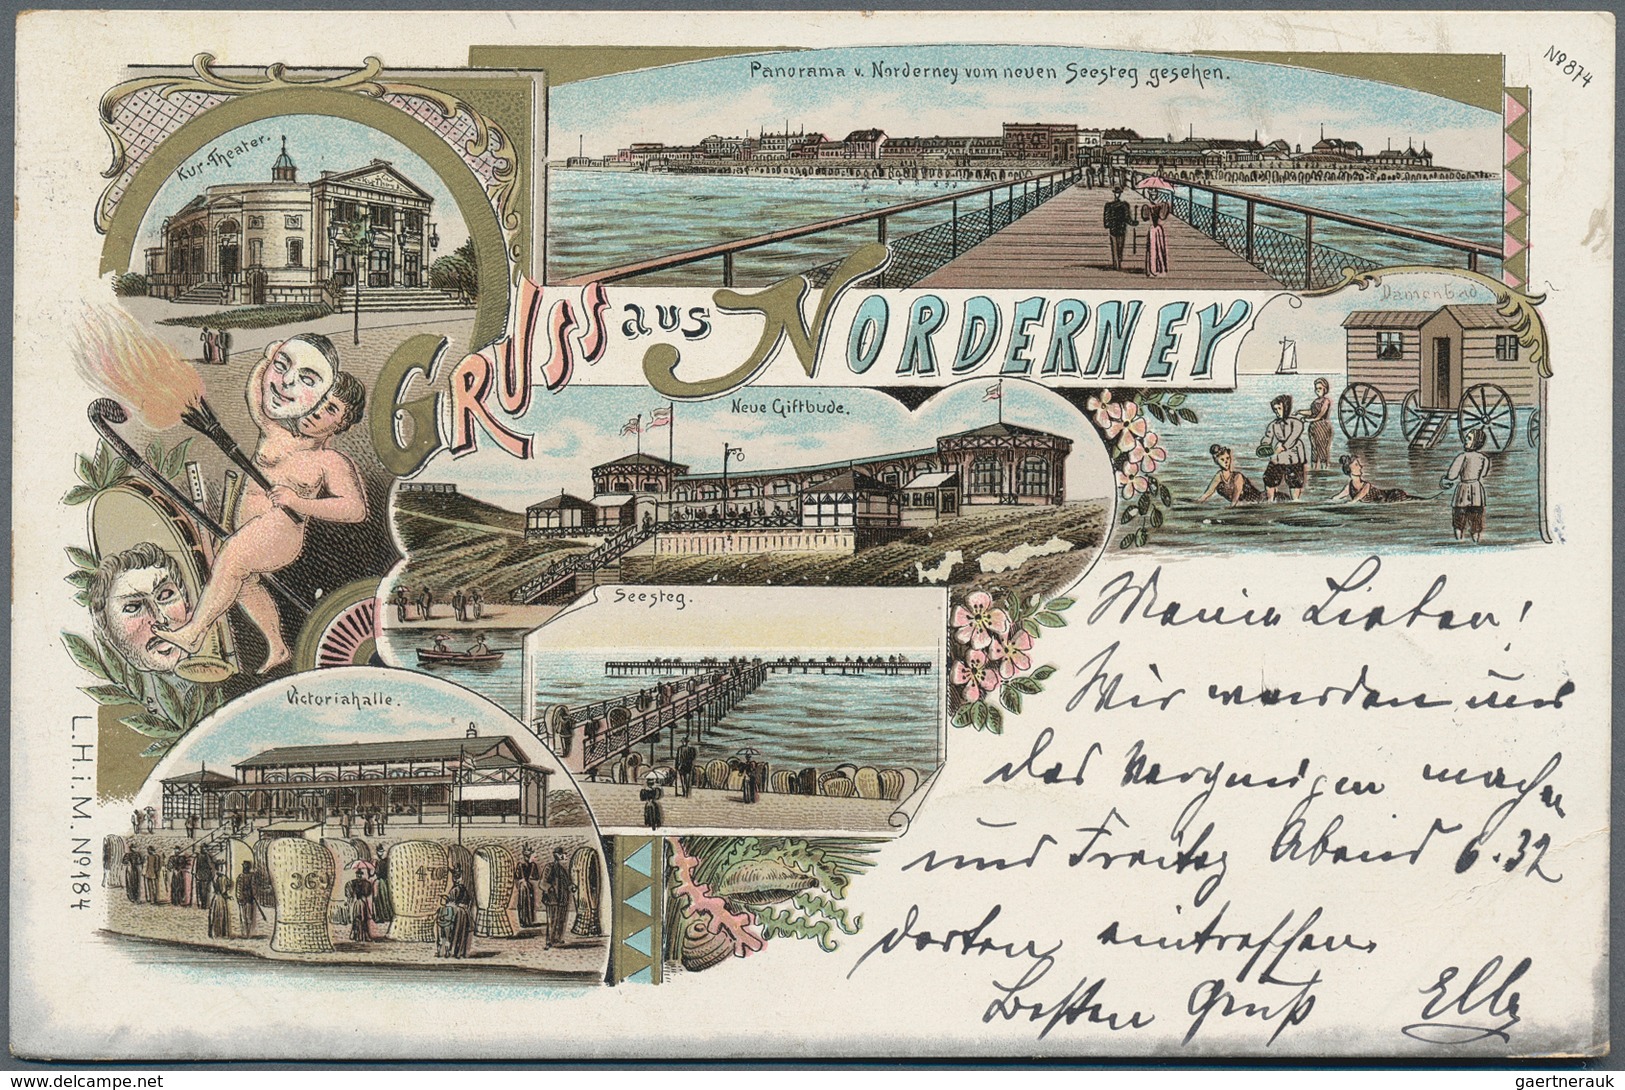 Nº 874
Panorama v. Norderney vom neuen Seesteg gesehen.
Kur-Theater.
GRUSS aus NORDERNEY
Damenbad
Neue Giftbude.
Seesteg.
Victoriahalle.
369
470
L.H.i.M. Nº 184
Meine Lieben!
Wir werden uns
das Vergnügen machen
und Freitag Abend 6.32
dorten eintreffen.
Besten Gruß Elly
delcampe.net
gaertnerauk